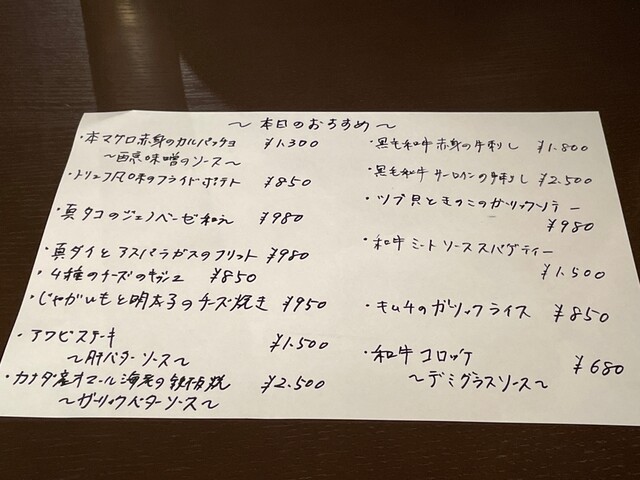 ～本日のおすすめ～
・本マグロ赤身のカルパッチョ ¥1.300
～西京味噌のソース～
・トリュフ風味のフライドポテト ¥850
・真タコのジェノベーゼ和え ¥980
・真ダイとアスパラガスのフリット ¥980
・4種のチーズのキッシュ ¥850
・じゃがいもと明太子のチーズ焼き ¥950
・アワビステーキ ¥1.500
～肝バターソース～
・カナダ産オマール海老の鉄板焼 ¥2.500
～ガーリックバターソース～
・黒毛和牛赤身の牛刺し ¥1.800
・黒毛和牛サーロインの牛刺し ¥2.500
・ツブ貝ときのこのガーリックソテー
¥980
・和牛ミートソーススパゲティー
¥1.500
・キムチのガーリックライス ¥850
・和牛コロッケ ¥680
～デミグラスソース～